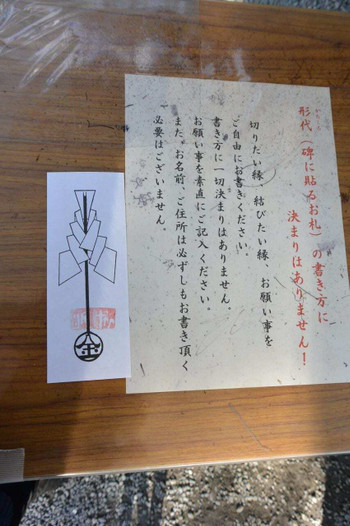 形代(碑に貼るお札)の書き方に
決まりはありません!
切りたい縁、結びたい縁 お願い事を
ご自由にお書きください。
書き方に一切決まりはありません。
お願い事を素直にご記入ください。
また、お名前、ご住所は必ずしもお書き頂く
必要はございません。
金